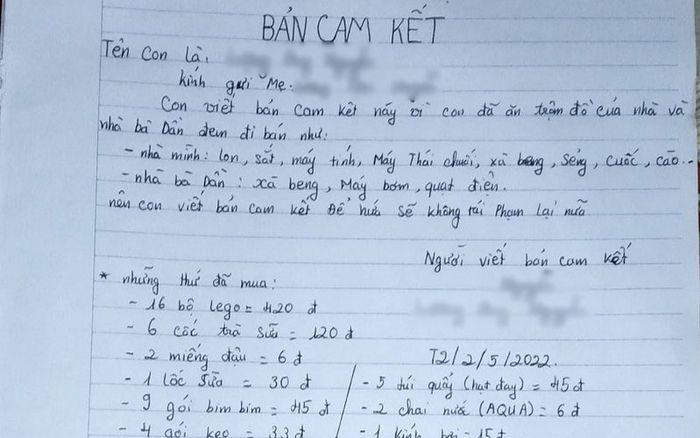 BẢN CAM KẾT
Tên Con là:
kính gửi Mẹ.
Con viết bản Cam kết này vì con đã ăn trộm đồ của nhà và
nhà bà Dần đem đi bán như:
- nhà mình: lon, sắt, máy tính, Máy Thái chuối, xà beng, Sẻng, Cuốc, cào...
- nhà bà Dần: xà beng, Máy bơm, quạt điện.
nên con viết bản cam kết Để hứa Sẽ không tái Phạm lại nữa
Người viết bản cam kết
* những thứ đã mua:
- 16 bộ lego = 420 đ
- 6 cốc trà sữa = 120 đ
- 2 miếng đậu = 6 đ
T2/2/5/2022.
- 1 lốc sữa = 30 đ
- 5 túi quẩy (hạt đay) = 45 đ
- 9 gói bim bim = 45 đ
- 2 chai nước (AQUA) = 6 đ
- 4 gói kẹo = 33 đ
- 1 kính bơi = 15 đ